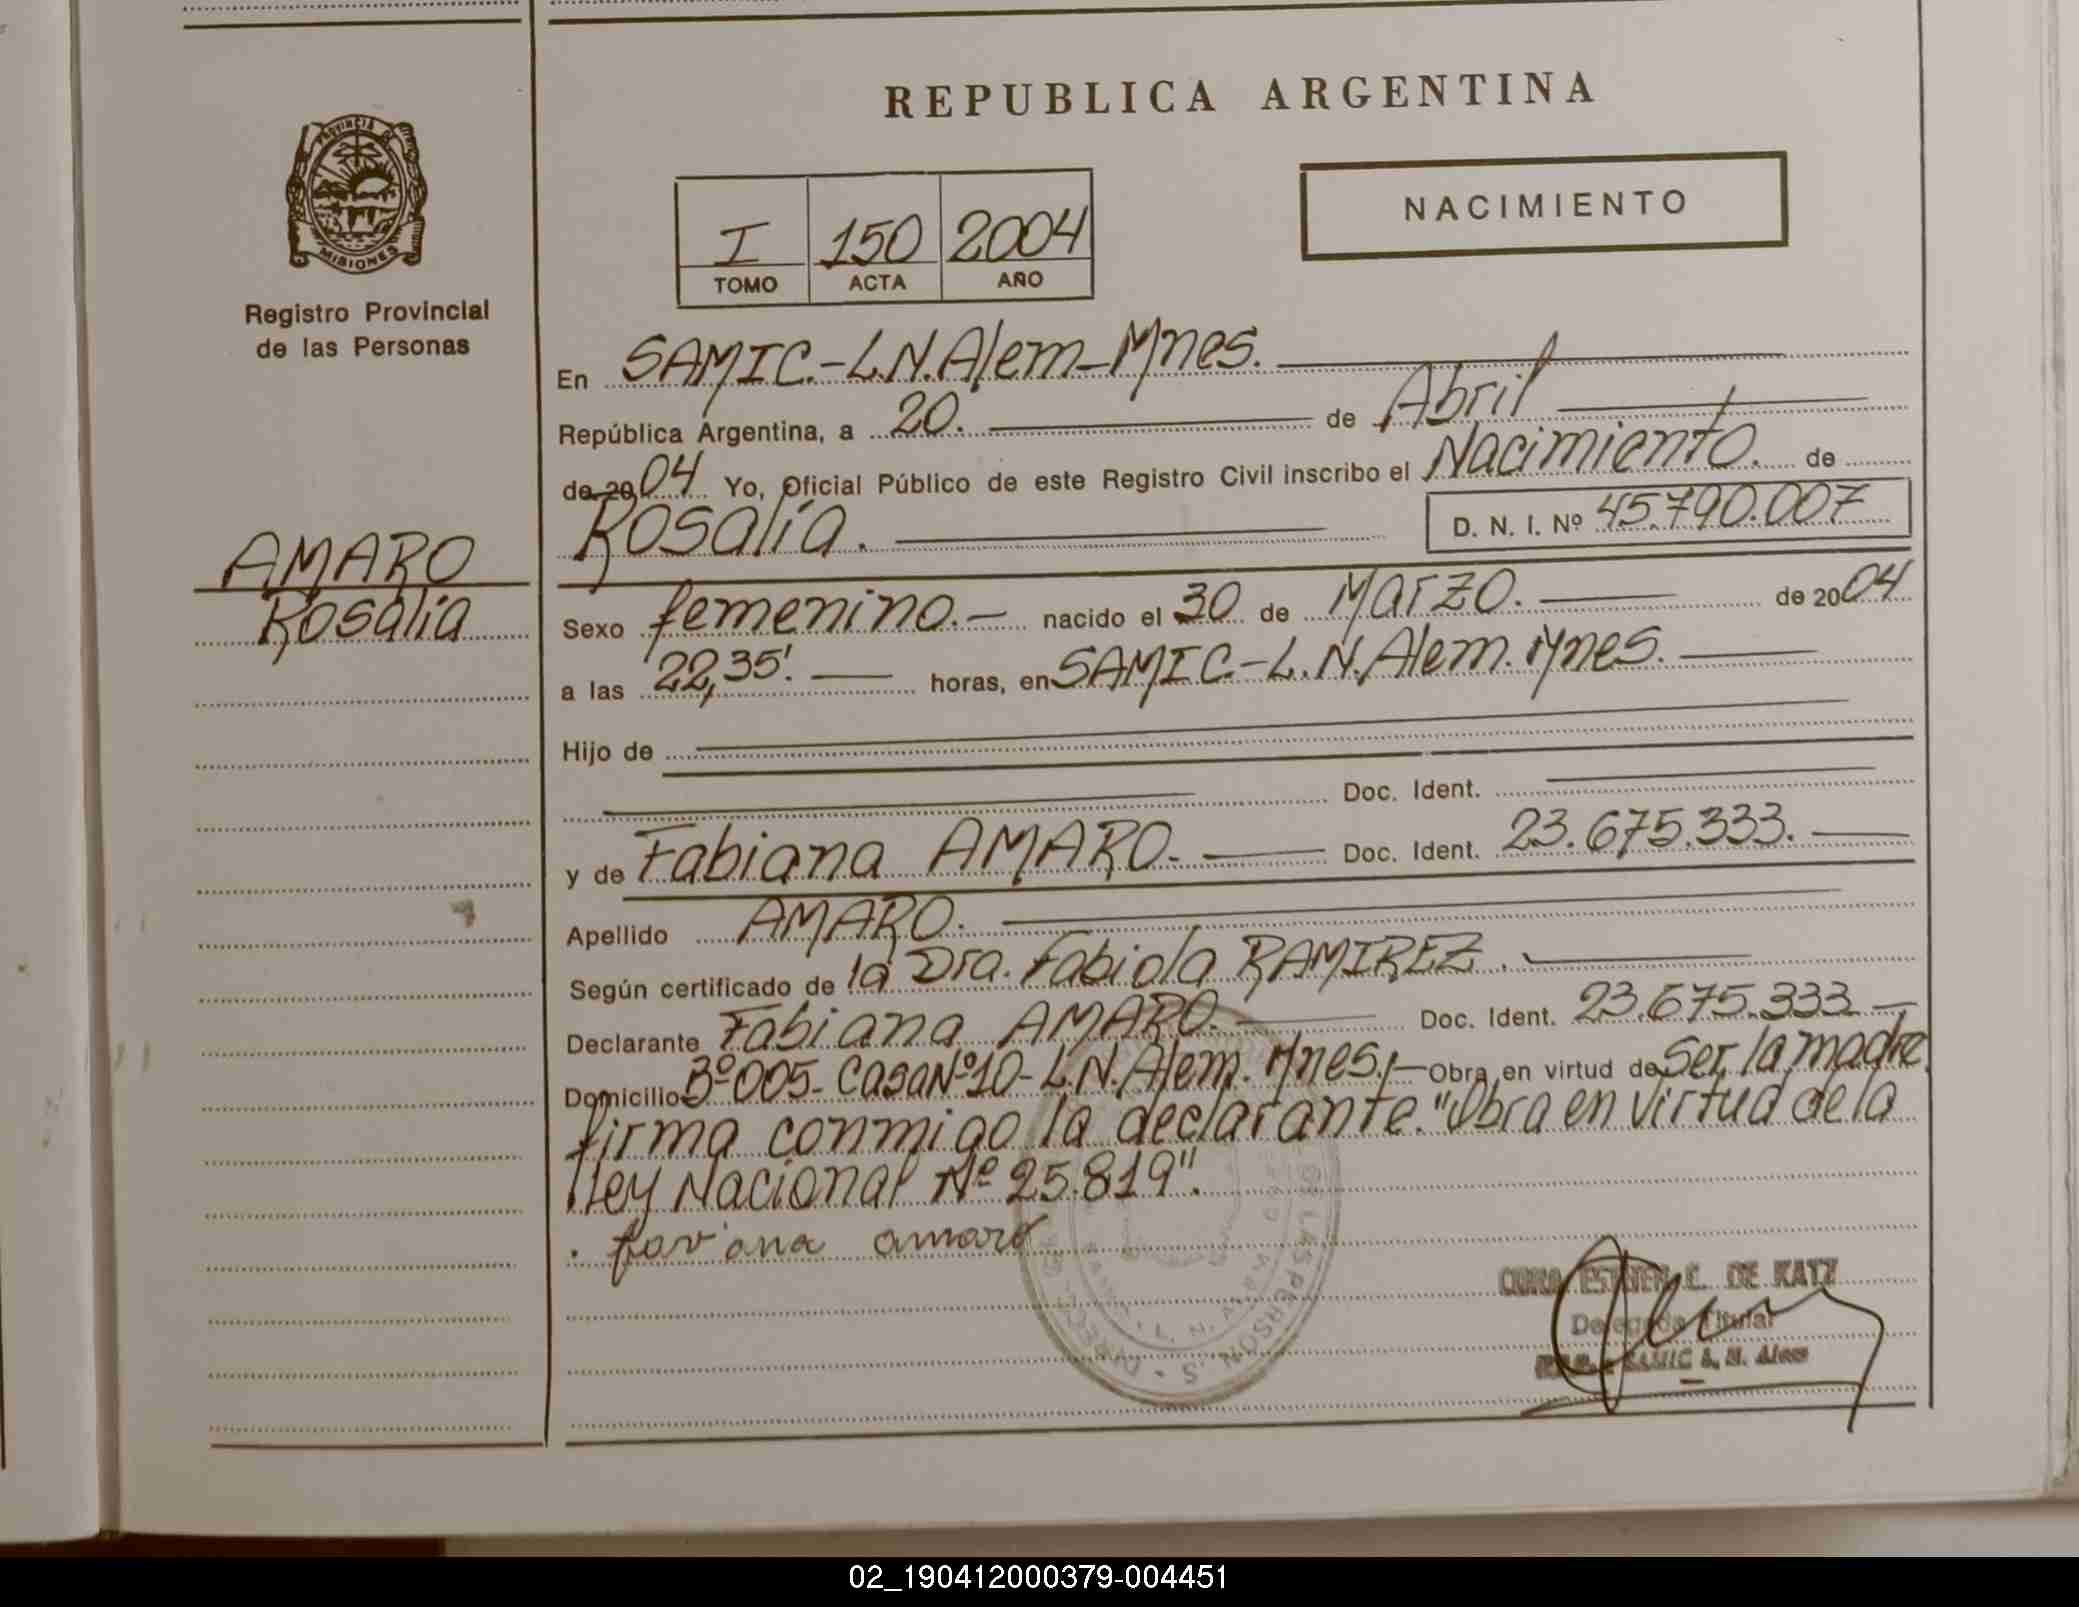 REPUBLICA ARGENTINA
PROVINCIA DE
MISIONES
Registro Provincial
de las Personas
NACIMIENTO
I 150 2004
TOMO ACTA AÑO
En SAMIC.-L.N.Alem-Mnes.
República Argentina, a 20. de Abril
de 2004 Yo, Oficial Público de este Registro Civil inscribo el Nacimiento. de
Rosalía. D. N. I. Nº 45.790.007
AMARO
Rosalía
Sexo femenino.- nacido el 30 de Marzo. de 2004
a las 22,35'. horas, en SAMIC.-L.N.Alem. Mnes.
Hijo de
Doc. Ident.
y de Fabiana AMARO. Doc. Ident. 23.675.333.
Apellido AMARO.
Según certificado de la Dra. Fabiola RAMIREZ.
Declarante Fabiana AMARO. Doc. Ident. 23.675.333
Domicilio Bº005- Casa Nº10- L.N.Alem. Mnes,- Obra en virtud de Ser la madre
firma conmigo la declarante. "Obra en virtud de la
lley Nacional Nº 25.819".
faviana amaro
ESTHER C. DE KATZ
Delegada Titular
SAMIC L. N. Alem
DE LAS PERSONAS
L. N. ALEM
02_190412000379-004451